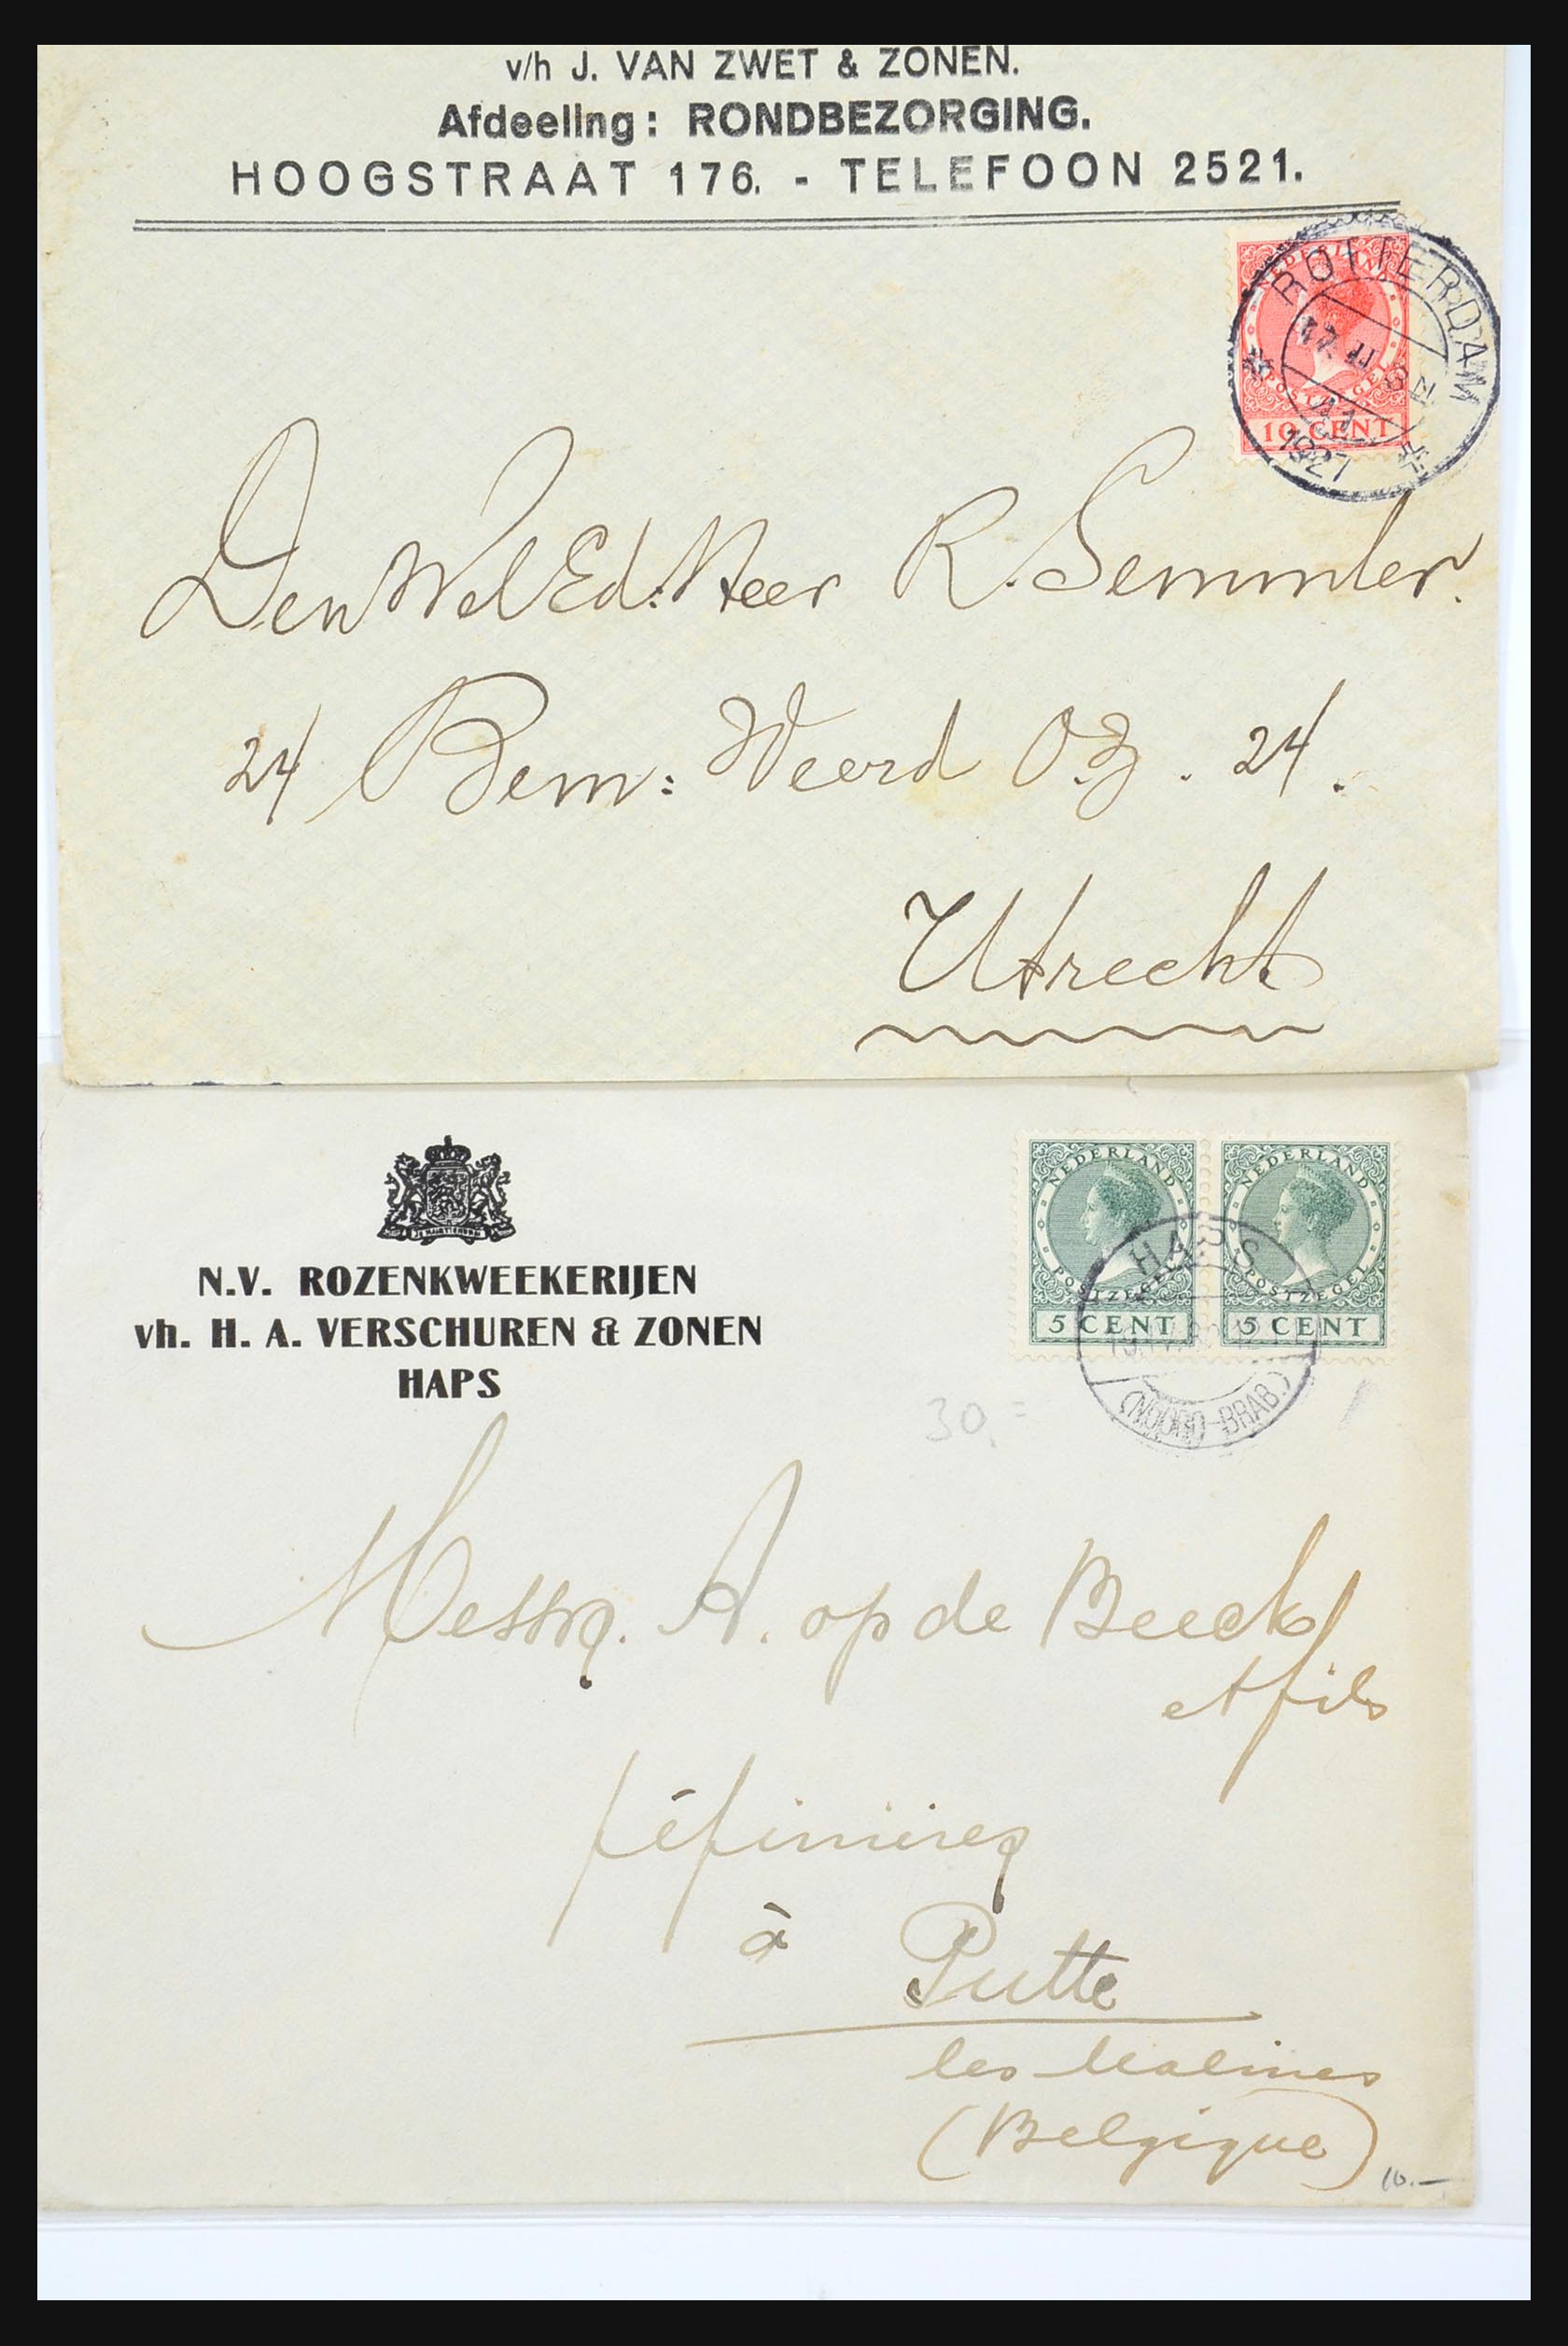 v/h J. VAN ZWET & ZONEN.
Afdeeling: RONDBEZORGING.
HOOGSTRAAT 176. - TELEFOON 2521.
NEDERLAND
POSTZEGEL
10 CENT
ROTTERDAM
1927
Den WelEd. Heer R. Semmler.
24 Bem: Weerd O.Z. 24.
Utrecht
JE MAINTIENDRAI
N.V. ROZENKWEEKERIJEN
vh. H. A. VERSCHUREN & ZONEN
HAPS
NEDERLAND NEDERLAND
POSTZEGEL POSTZEGEL
5 CENT 5 CENT
HAPS
(NOORD-BRAB.)
30.=
Messrs. A. op de Beeck
et fils
à Putte
les Malines
(Belgique)
10.-